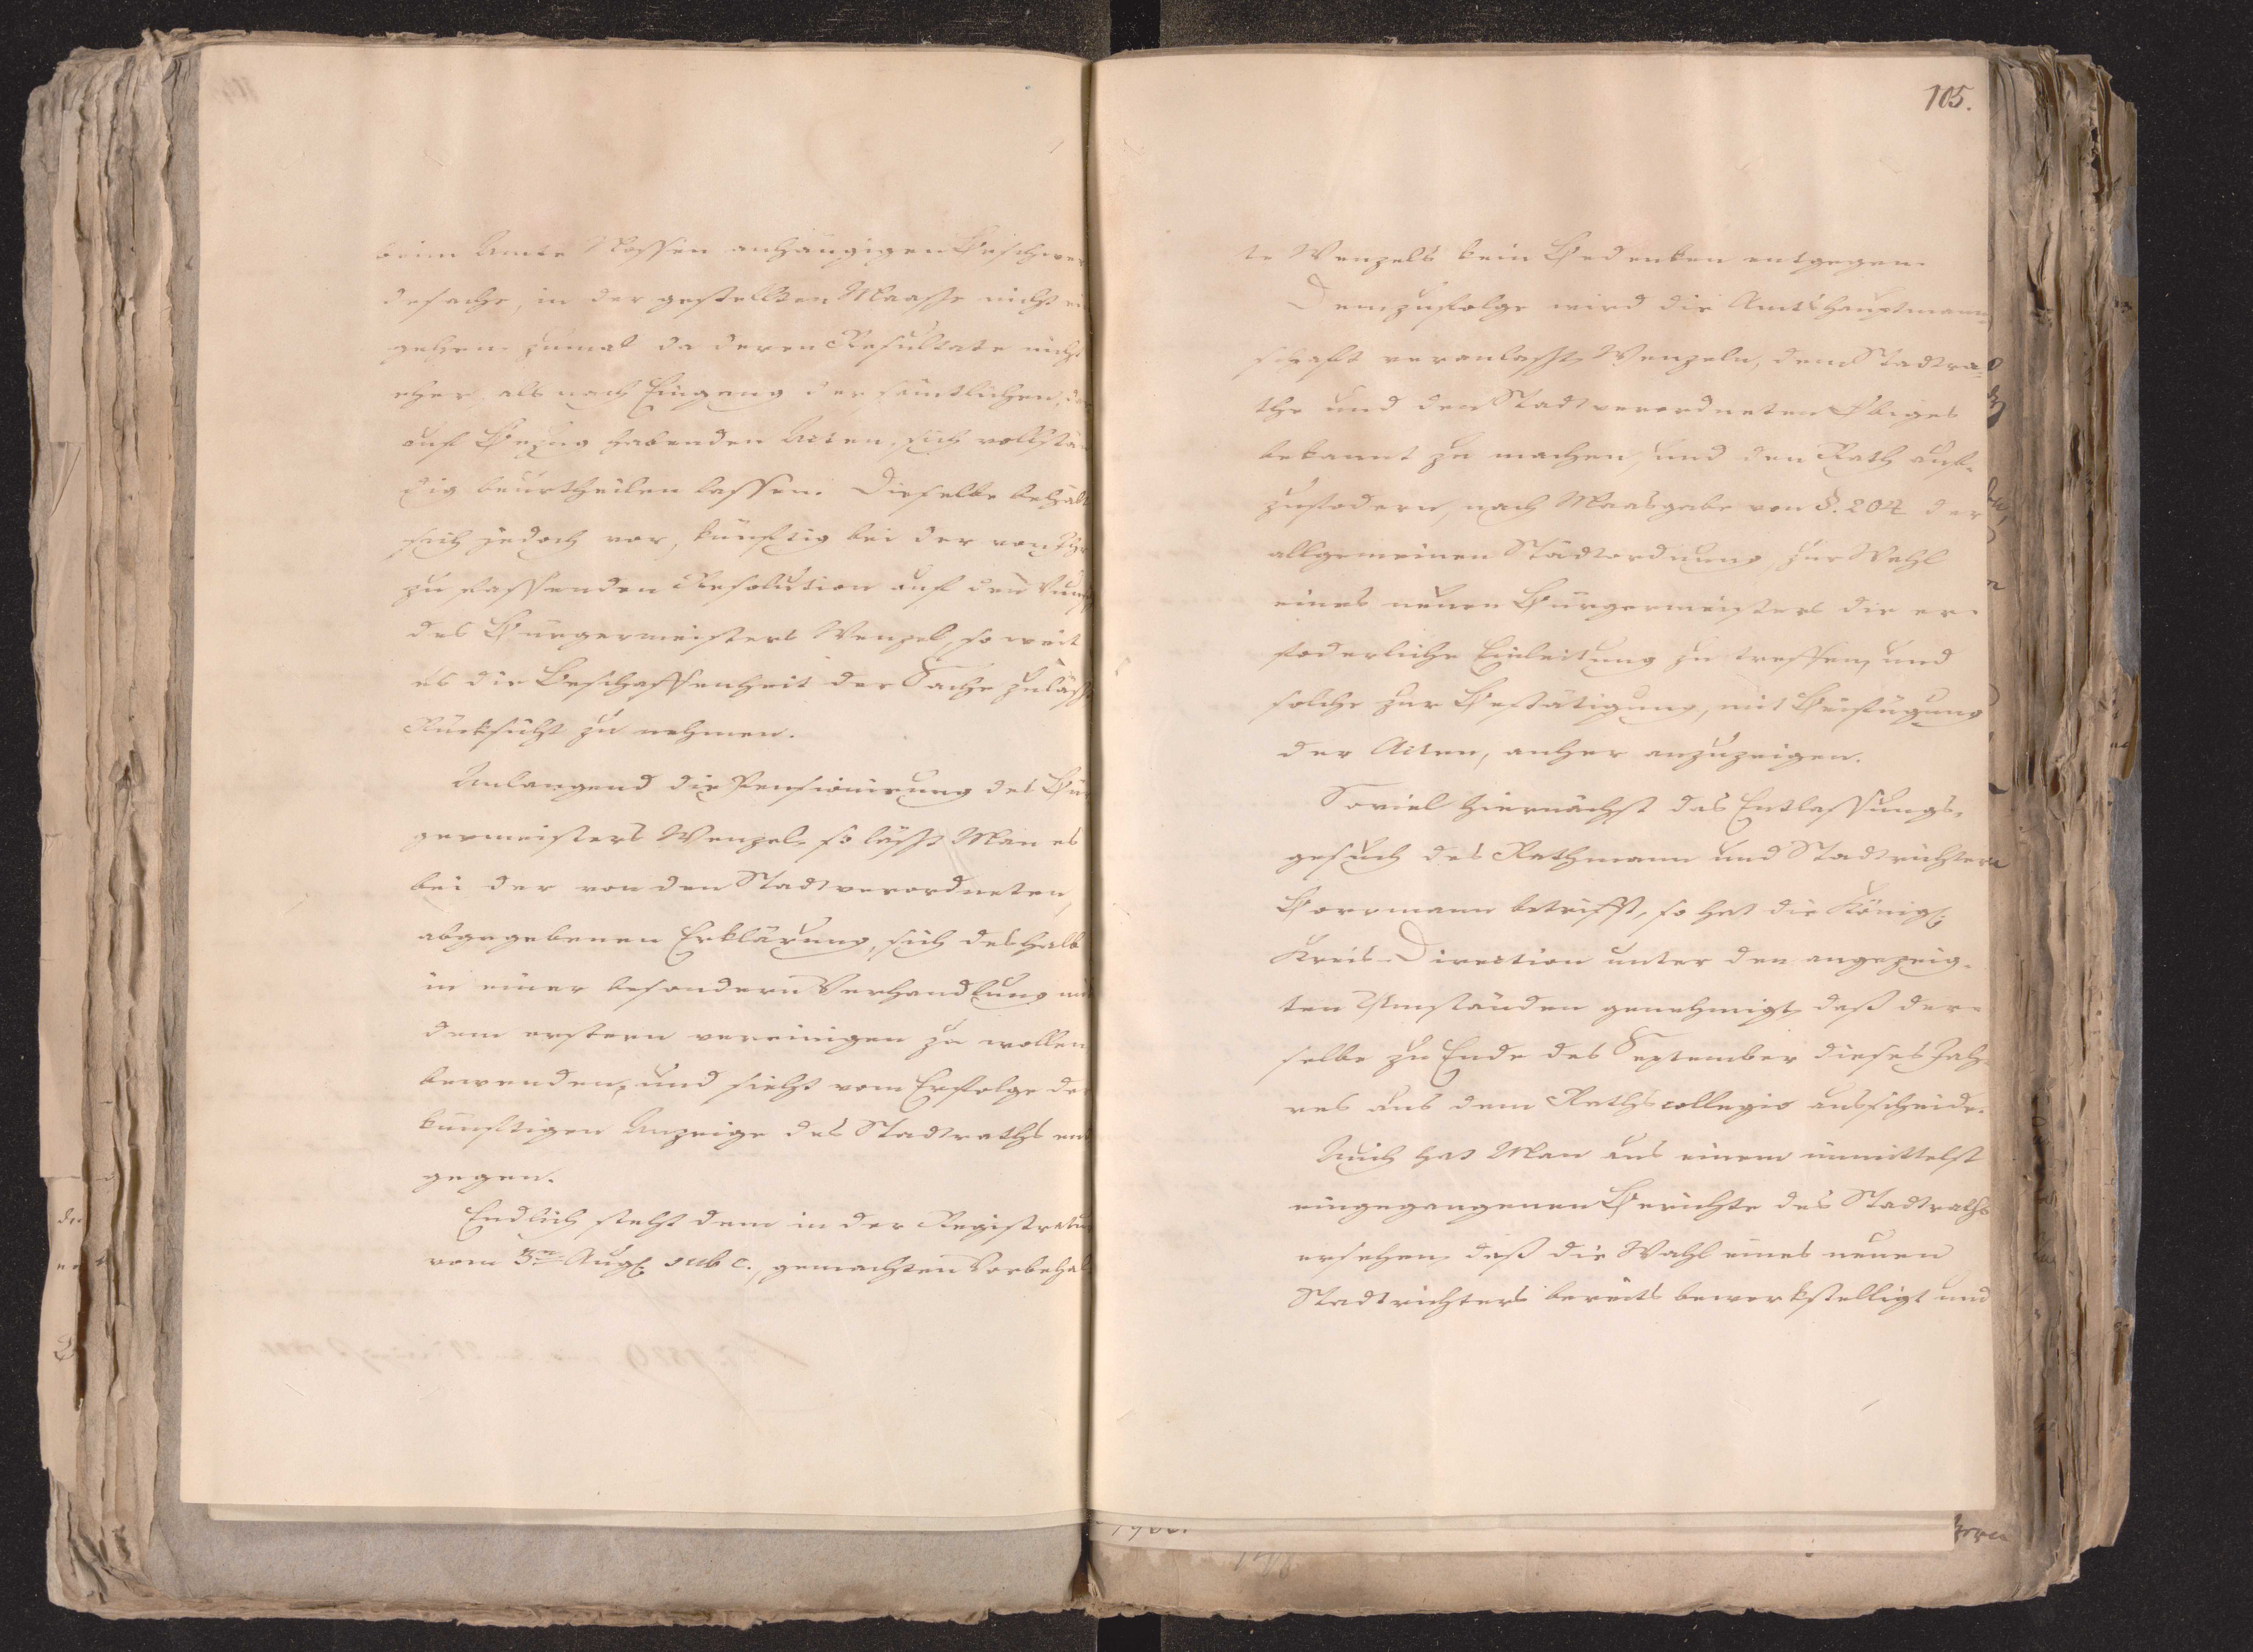 beim Amte Nossen anhängigen Beschwer
desache, in der gestellten Maasse nicht ein
gehen, zumal da deren Resultate nicht
eher, als nach Eingang der sämtlichen, dar
auf Bezug habenden Acten, sich vollstän
dig beurtheilen lassen. Dieselbe behält
sich jedoch vor, künftig bei der von Ihr
zu fassenden Resolution auf den
des Bürgermeisters Wenzel, so weit
es die Beschaffenheit der Sache zuläßt
Rücksicht zu nehmen.
Anlangend die Pensionirung des Bür
germeisters Wenzel, so läßt Man es
bei der von den Stadtverordneten,
abgegebenen Erklärung, sich deshalb
in einer besondern Verhandlung mit
dem erstern vereinigen zu wollen
bewenden, und sieht vom Erfolge der
künftigen Anzeige des Stadtraths ent
gegen.
Endlich steht dem in der Registratur
vom 3ten Augs. sub C. gemachten Vorbehal
105.
te Wenzels kein Bedenken entgegen.
Demzufolge wird die Amtshauptmann-
schaft veranlaßt, Wenzeln, dem Stadtra-
the und den Stadtverordneten Obiges
bekannt zu machen, und den Rath auf-
zufodern, nach Maasgabe von §. 204 der
allgemeinen Städtordnung, zur Wahl
eines neuen Bürgermeisters die er-
foderliche Einleitung zu treffen, und
solche zur Bestätigung, mit Beifügung
der Acten, anher anzuzeigen.
Soviel hiernächst das Entlassungs-
gesuch des Rathmann und Stadtrichters
Borrmann betrifft, so hat die Königl.
Kreis-Direction unter den angezeig-
ten Umständen genehmigt, daß der-
selbe zu Ende des September dieses Jah-
res aus dem Rathscollegio ausscheide.
Auch hat Man aus einem inmittelst
eingegangenen Berichte des Stadtraths
ersehen, daß die Wahl eines neuen
Stadtrichters bereits bewerkstelligt und